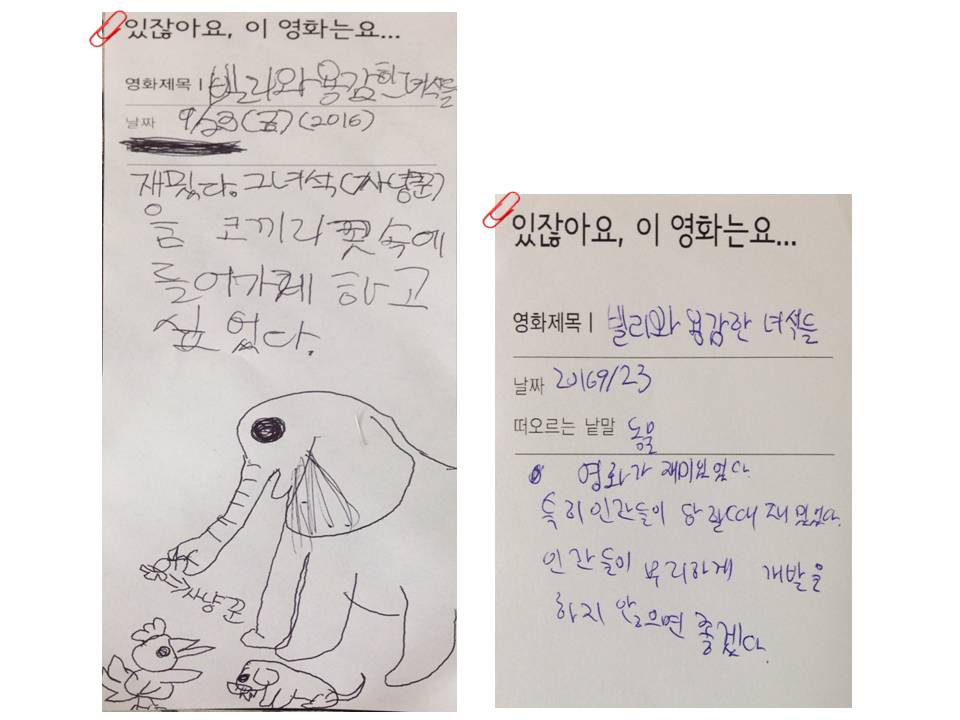 있잖아요, 이 영화는요...
영화제목 | 빌리와 용감한 녀석들
날짜 9/23(금)(2016)
재밌다. 그녀석(사냥꾼)
을 코끼리
들어가게 하고
싶었다.
사냥꾼
있잖아요, 이 영화는요...
영화제목 | 빌리와 용감한 녀석들
날짜 2016 9/23
떠오르는 낱말 동물
영화가 재미있었다.
특히 인간들이 당할때 재밌었다.
인간들이 무리하게 개발을
하지 않으면 좋겠다.